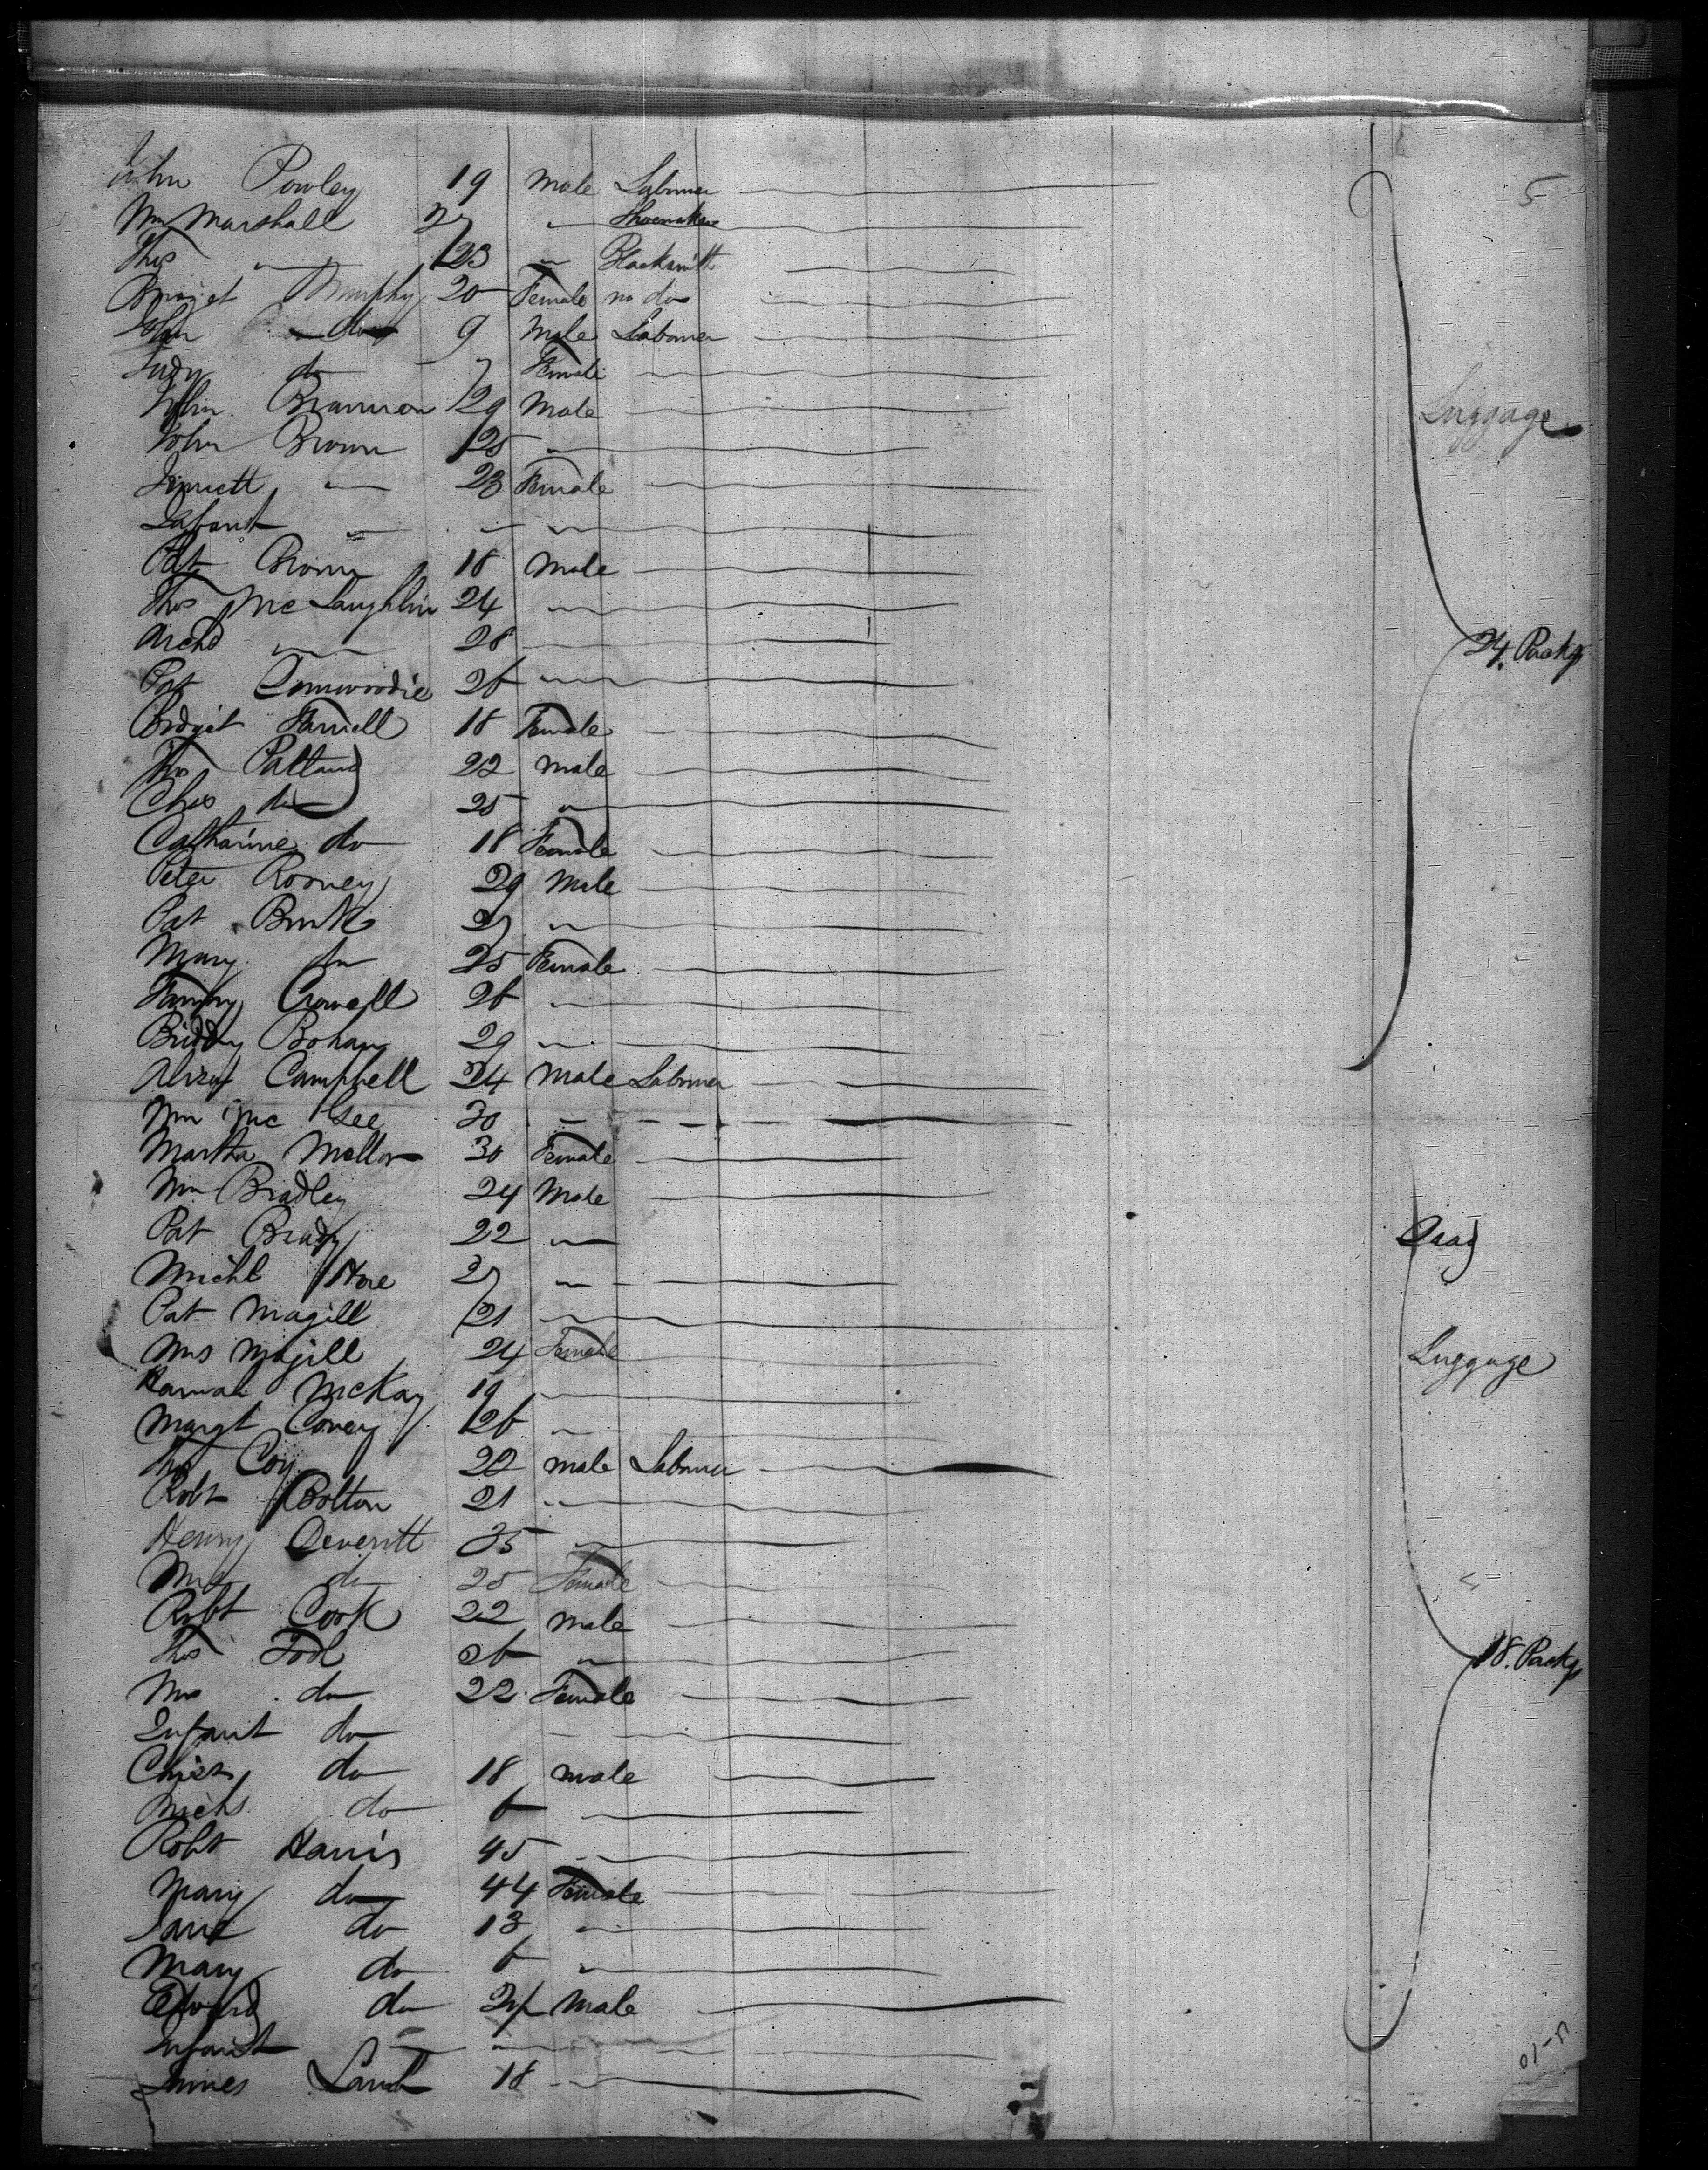 5
John Powley 19 Male Labourer
Wm Marshall 27 " Shoemaker
Thos " 23 " Blacksmith
Bridget Murphy 20 Female no do
John do 9 Male Labourer
Judy do 7 Female
John Brannon 29 Male
John Brown 25 "
Jennett " 23 Female
Infant " " "
Pat Brown 18 Male
Thos McLaughlin 24 "
Archd " 28
Pat 26 "
Bridget Farrell 18 Female
Thos 22 Male
Chas do 25 "
Catharine do 18 Female
Peter Rooney 29 Male
Pat Burk 27 "
Mary do 25 Female
Crowell 26 "
Biddy Bohan 29 "
Alexr Campbell 24 Male Labourer
Wm McGee 30 "
Martha Mellor 30 Female
Wm Bradley 24 Male
Pat Brady 22 "
Michl Hore 27 "
Pat Magill 21 "
Mrs Magill 24 Female
Hannah McKay 19 "
Margt Covey 26 "
Thos Coy 22 Male Labourer
Robt Bolton 21 "
Henry Deveritt 35 "
Mrs do 25 Female
Robt Cook 22 Male
Thos Tod 26 "
Mrs do 22 Female
Infant do
do 18 Male
Michs do 6
Robt Harris 45 "
Mary do 44 Female
Jane do 13 "
Mary do 6 "
Edward do 24 Male
Infant " "
James Lamb 18 "
Luggage
24 Packgs
Luggage
18 Packgs